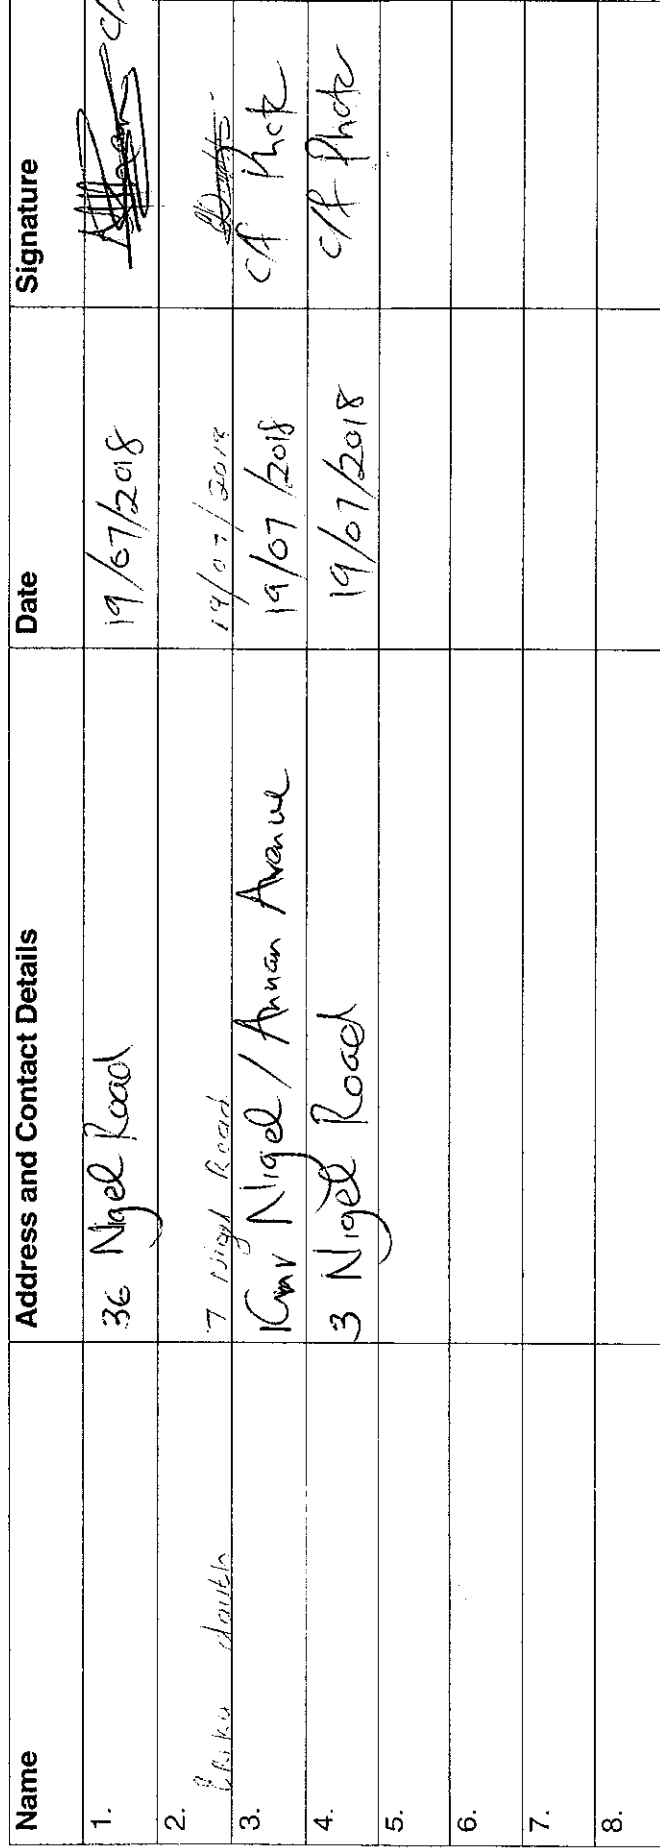 Name Address and Contact Details Date Signature
1. 36 Nigel Road 19/07/2018
2. 7 Nigel Road 19/07/2018
3. Cnr Nigel / Annan Avenue 19/07/2018 c/f Photo
4. 3 Nigel Road 19/07/2018 c/f Photo
5.
6.
7.
8.